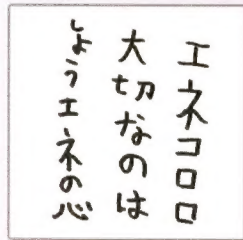 エネコロロ
大切なのは
しょうエネの心